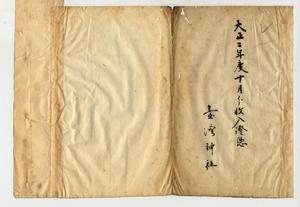 大正二年度十月分收入證憑
臺灣神社